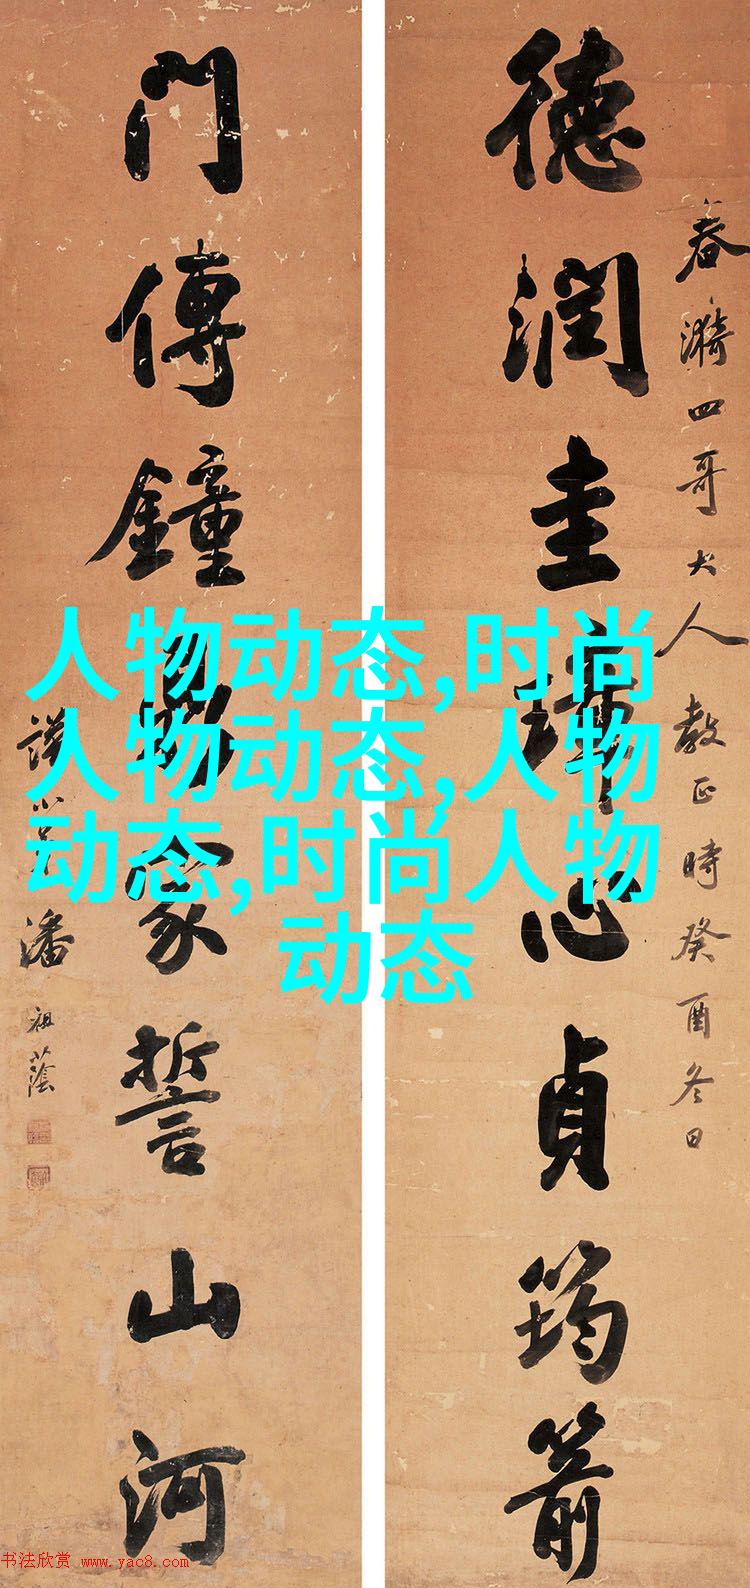 德潤圭璋心貞筠箭
春漪四哥大人教正時癸酉冬日
門傳鐘鼎家誓山河
潘祖蔭
人物动态,时尚
人物动态,人物
动态,时尚人物
动态
书法欣赏 www.yac8.com